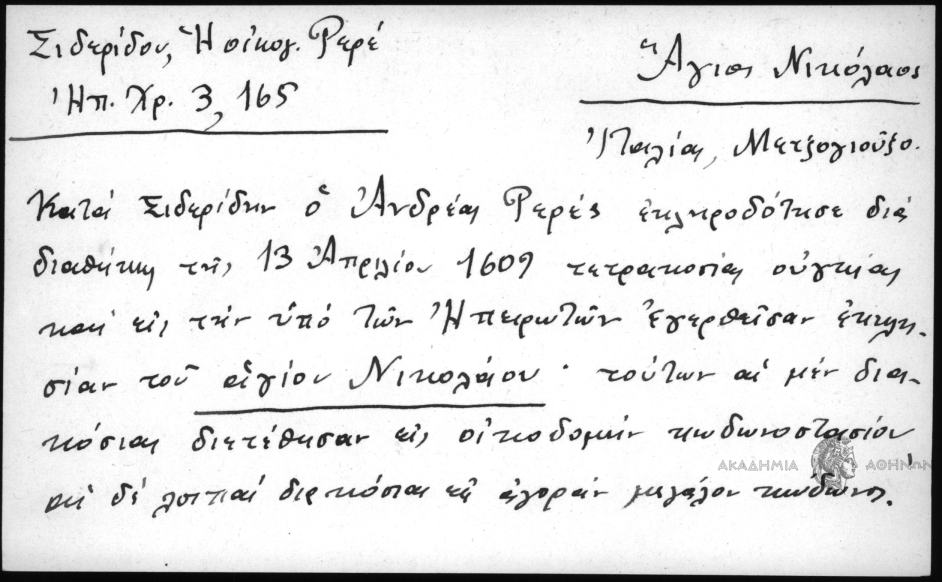 Σιδερίδου, Ἡ οἰκογ. Ρερέ
Ἠπ. Χρ. 3, 165
Ἅγιος Νικόλαος
Ἰταλία, Μετζογιοῦζο.
Κατά Σιδερίδην ὁ Ἀνδρέας Ρερές ἐκληροδότησε διά
διαθήκης τῆς 13 Ἀπριλίου 1609 τετρακοσίας οὐγκίας
καί εἰς τήν ὑπό τῶν Ἠπειρωτῶν ἐγερθεῖσαν ἐκκλη-
σίαν τοῦ ἁγίου Νικολάου · τούτων αἱ μέν δια-
κόσιαι διετέθησαν εἰς οἰκοδομήν κωδωνοστασίου
αἱ δέ λοιπαί διακόσιαι εἰς ἀγοράν μεγάλου κώδωνος.
ΑΚΑΔΗΜΙΑ ΑΘΗΝΩΝ